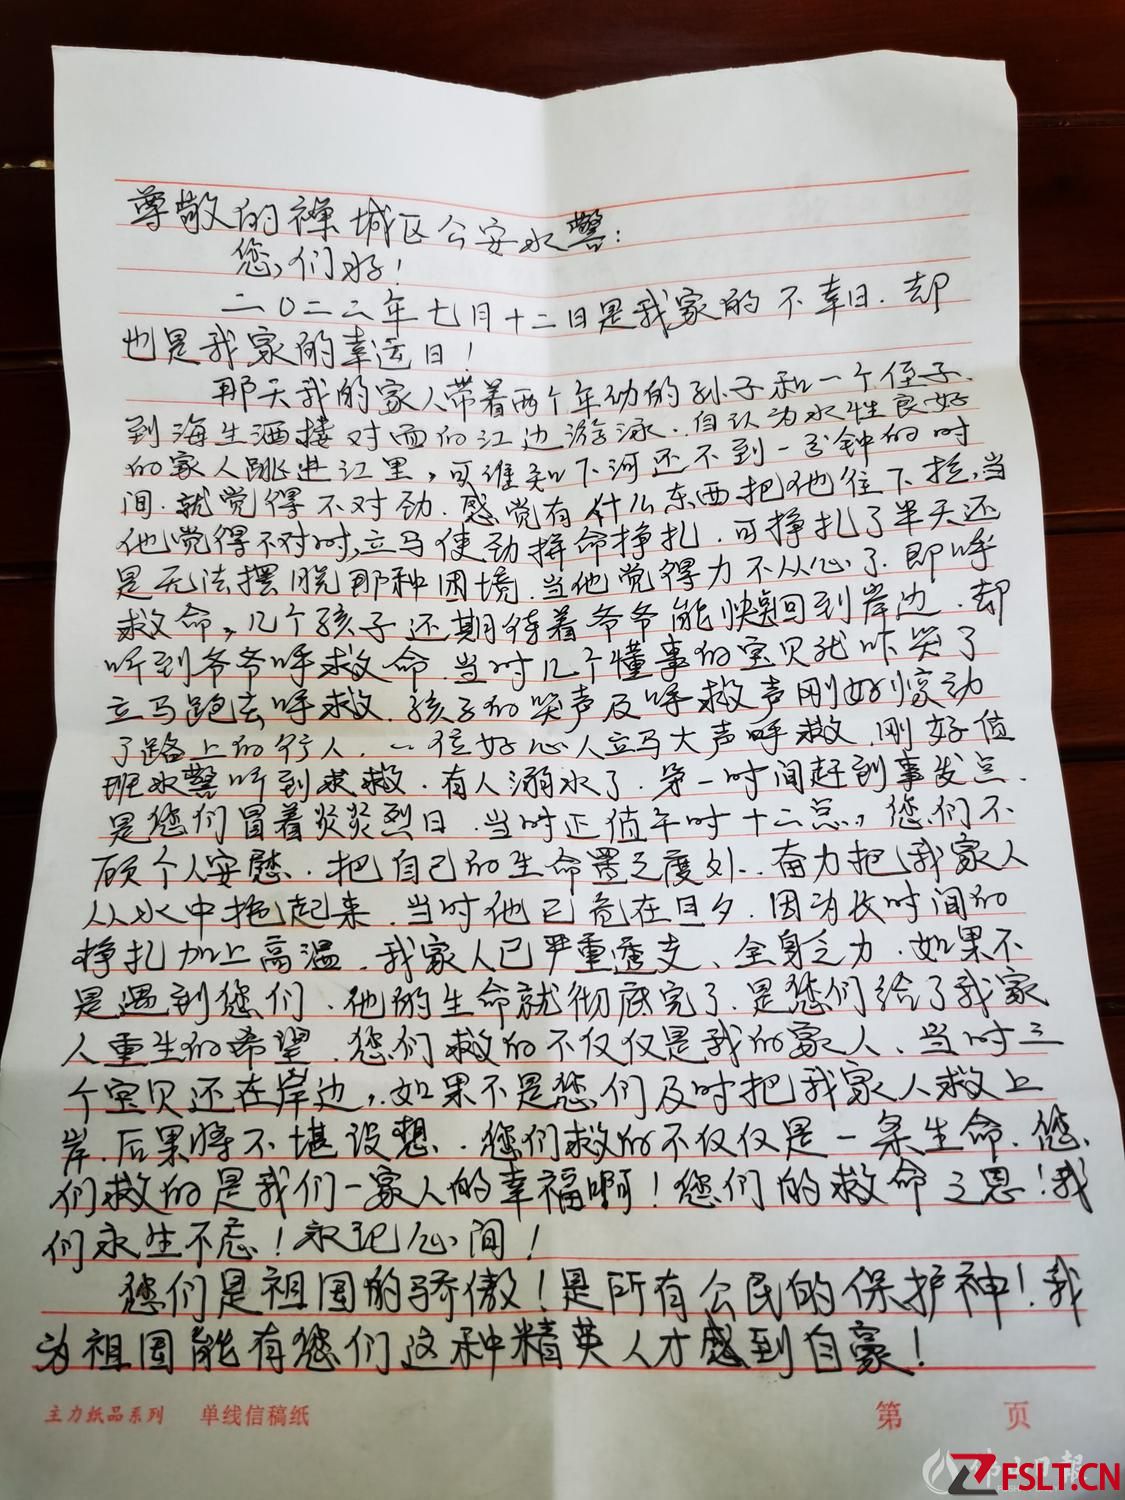 尊敬的禅城区公安水警:
您们好!
二0二二年七月十二日是我家的不幸日.却
也是我家的幸运日!
那天我的家人带着两个年幼的孙子和一个侄子.
到海生酒楼对面的江边游泳.自认为水性良好
的家人跳进江里,可谁知下河还不到一分钟的时
间.就觉得不对劲.感觉有什么东西把他往下拉,当
他觉得不对时,立马使劲拼命挣扎.可挣扎了半天还
是无法摆脱那种困境.当他觉得力不从心了.即呼
救命,几个孩子还期待着爷爷能快点回到岸边.却
听到爷爷呼救命.当时几个懂事的宝贝就吓哭了
立马跑去呼救.孩子的哭声及呼救声刚好惊动
了路上的行人.一位好心人立马大声呼救.刚好值
班水警听到求救.有人溺水了.第一时间赶到事发点.
是您们冒着炎炎烈日.当时正值午时十二点,您们不
顾个人安慰.把自己的生命置之度外.奋力把我家人
从水中拖起来.当时他已危在旦夕.因为长时间的
挣扎加上高温.我家人已严重透支、全身乏力.如果不
是遇到您们.他的生命就彻底完了.是您们给了我家
人重生的希望.您们救的不仅仅是我的家人、当时三
个宝贝还在岸边,.如果不是您们及时把我家人救上
岸.后果将不堪设想.您们救的不仅仅是一条生命.您
们救的是我们一家人的幸福啊!您们的救命之恩!我
们永生不忘!永记心间!
您们是祖国的骄傲!是所有公民的保护神!我
为祖国能有您们这种精英人才感到自豪!
主力纸品系列 单线信稿纸 第 页
佛山日報
FSLT.CN